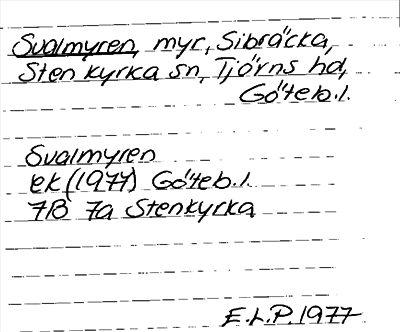 Svalmyren, myr, Sibräcka,
Stenkyrka sn, Tjörns hd,
Göteb.l.
Svalmyren
ek (1977) Göteb.l.
7B 7a Stenkyrka
E.L.P. 1977